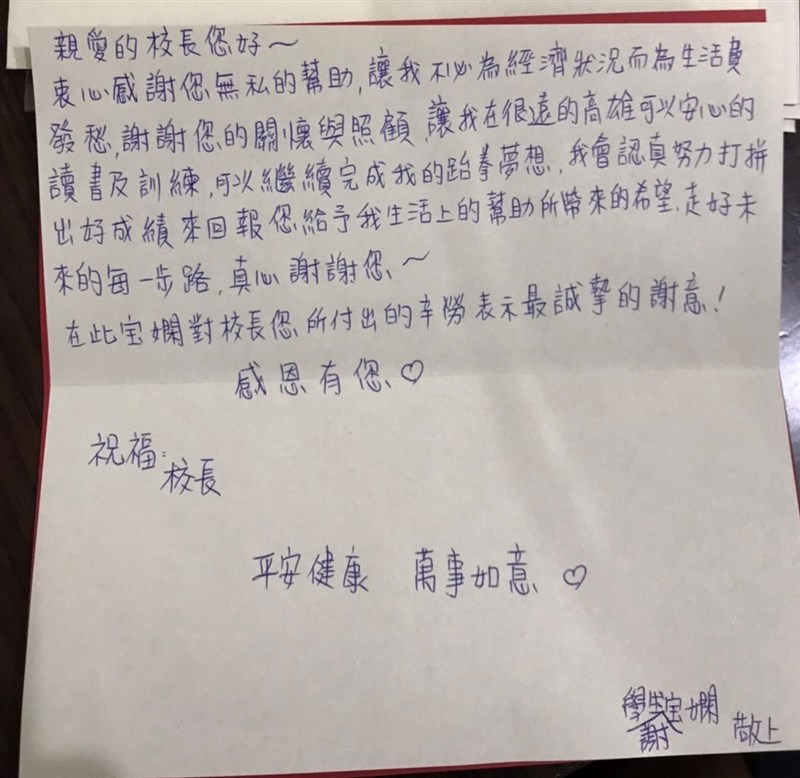 親愛的校長您好～
衷心感謝您無私的幫助,讓我不必為經濟狀況而為生活費
發愁,謝謝您的關懷與照顧,讓我在很遠的高雄可以安心的
讀書及訓練,可以繼續完成我的跆拳夢想,我會認真努力打拼
出好成績來回報您給予我生活上的幫助所帶來的希望,走好未
來的每一步路,真心謝謝您、～
在此宝嫻對校長您所付出的辛勞表示最誠摯的謝意！
感恩有您、♡
祝福:
校長
平安健康 萬事如意、♡
學生謝宝嫻 敬上